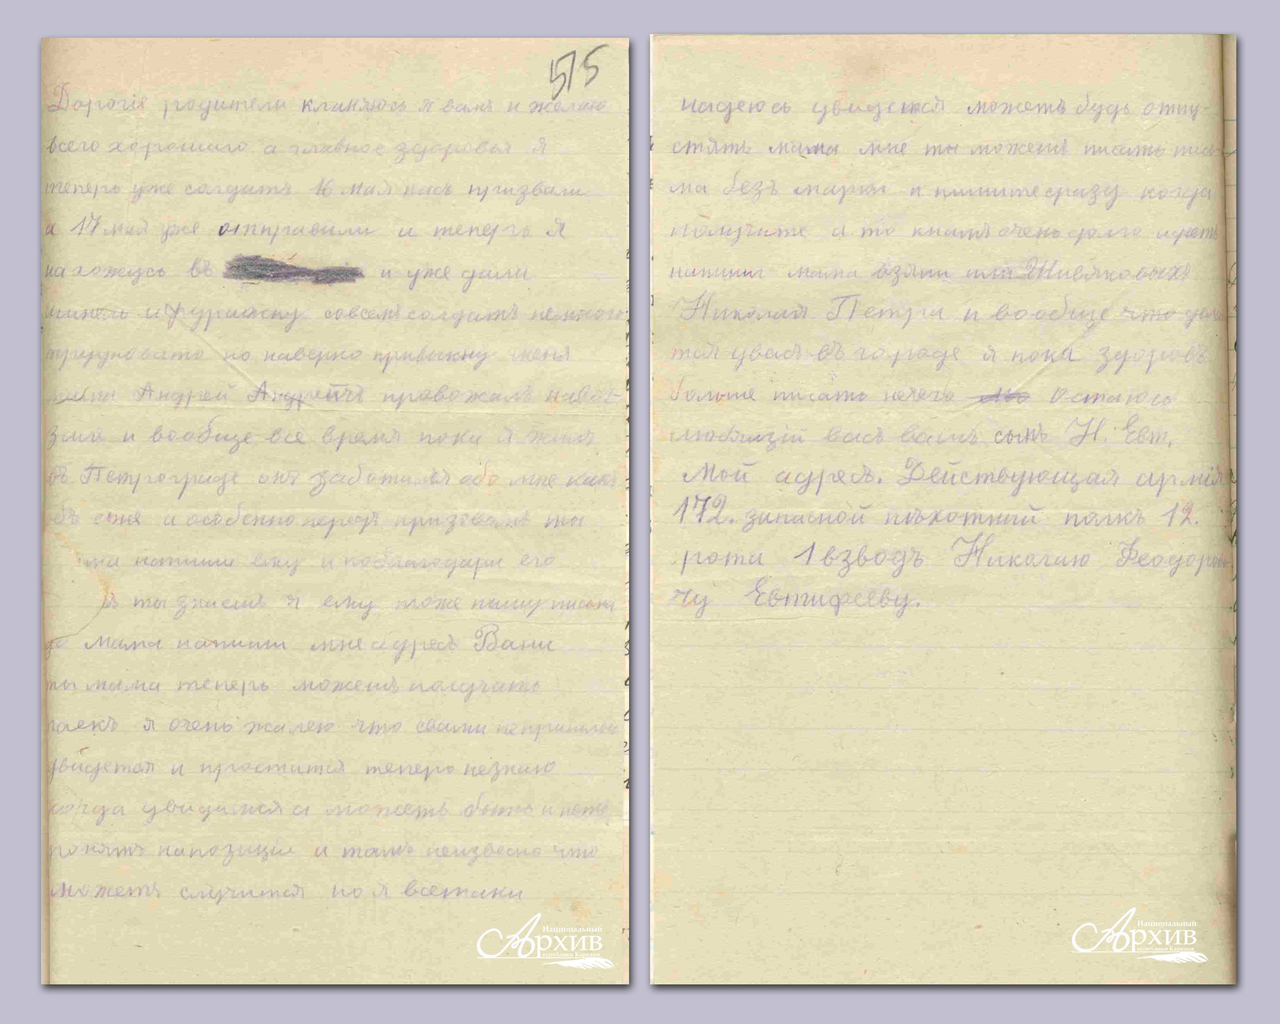 515
Дорогiя родители кланяюсь я вамъ и желаю
всего хорошаго а главное здоровья я
теперь уже солдатъ 16 мая насъ призвали
а 17 мая уже отправили и теперь я
нахожусь въ и уже дали
шинель и фуражку совсемъ солдатъ немного
трудновато но наверно привыкну меня
Андрей Андреичъ провожалъ на
и вообще все время пока я жилъ
въ Петрограде онъ заботился обо мне какъ
объ сыне и особенно передъ призывомъ ты
мама напиши ему и поблагодари его
ты знаешъ я ему тоже пишу письма
да мама напиши мне адресъ Вани
ты мама теперь можешъ получать
паекъ я очень жалею что свами непришлось
увидется и простится теперь незнаю
когда увидимся а можетъ быть и
угонятъ на позицiи и тамъ неизвесно что
можетъ случится но я всетаки
надеюсь увидется можетъ будь отпу-
стятъ мама мне ты можешъ писать пись
ма безъ марки и пишите сразу когда
получите а то книмя очень долго идетъ
напиши мама взяли или Шивяковыхъ
Николая Петра и вообще что дела
тся увася въ городе я пока здоровъ
больше писать нечего остаюсь
любящiй васъ вашъ сынъ Н. Евт.
Мой адресъ. Действующая армiя
172. запасной пехотный полкъ 12.
рота 1 взводъ Николаю Феодорови
чу Евтифееву.
Национальный
Архив
Национальный
Архив